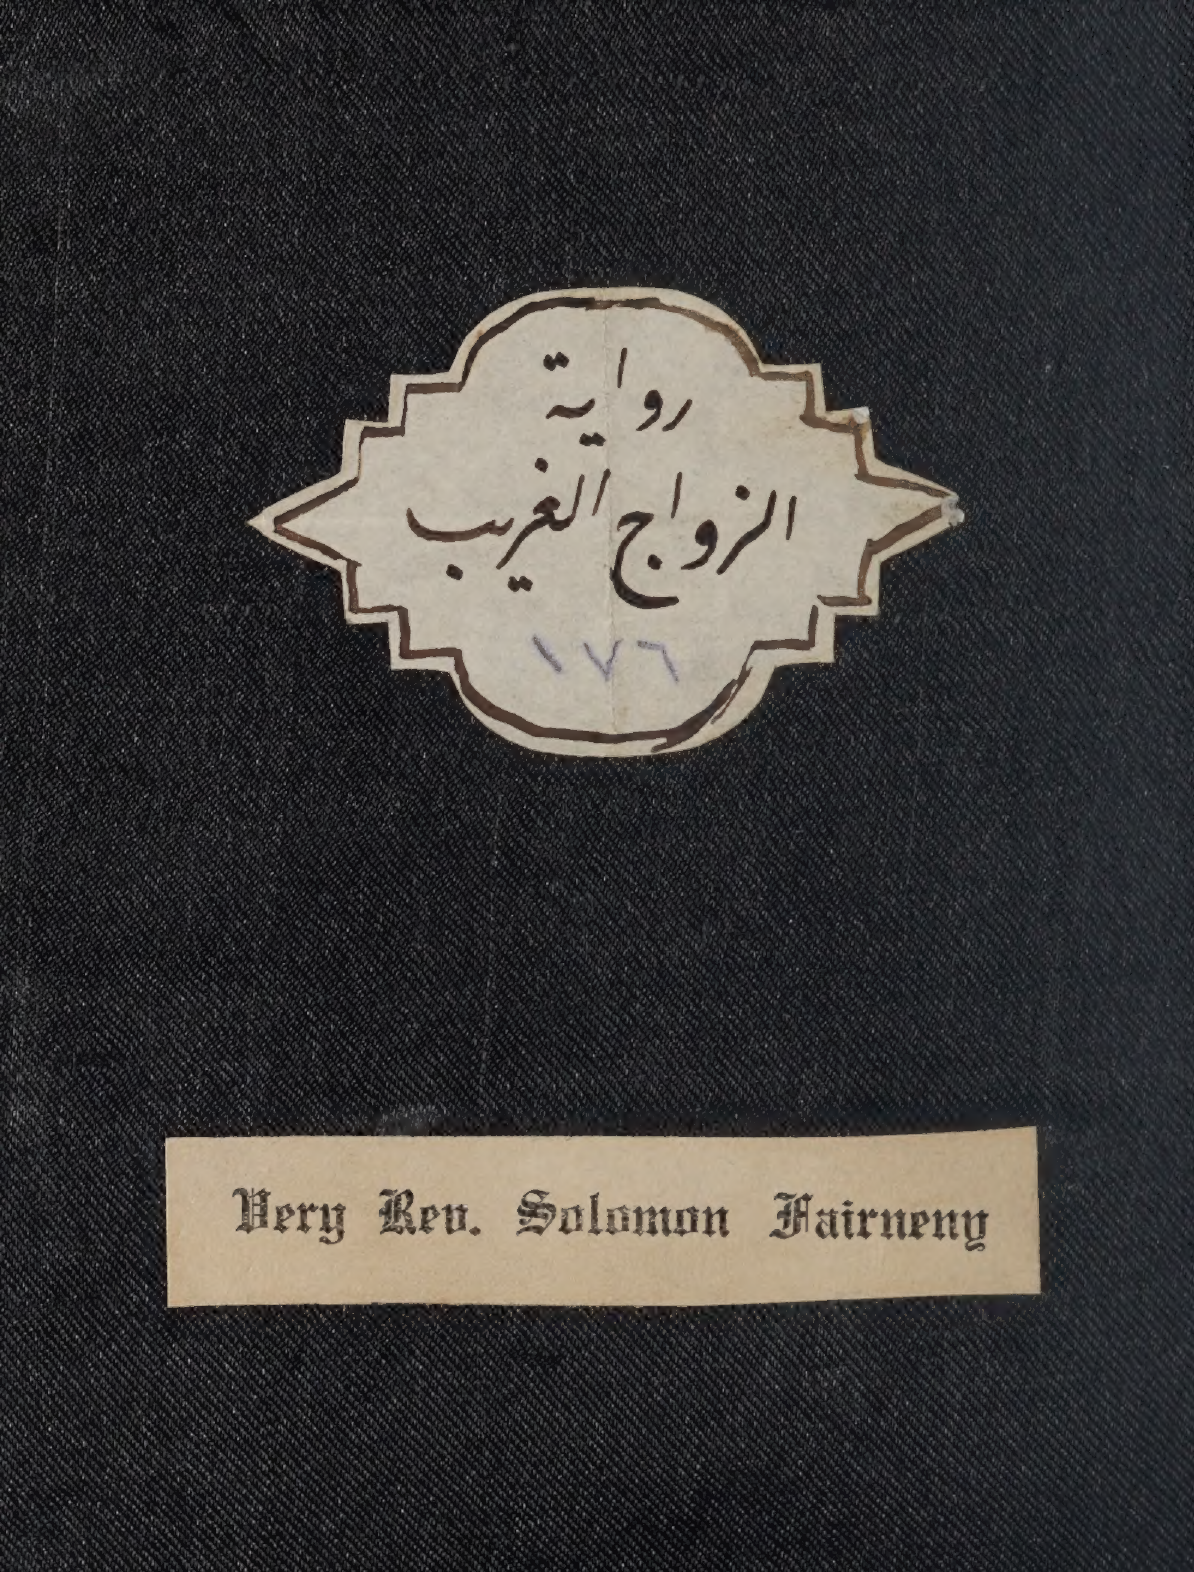 رواية
الزواج الغريب
١٧٦
Very Rev. Solomon Fairneny